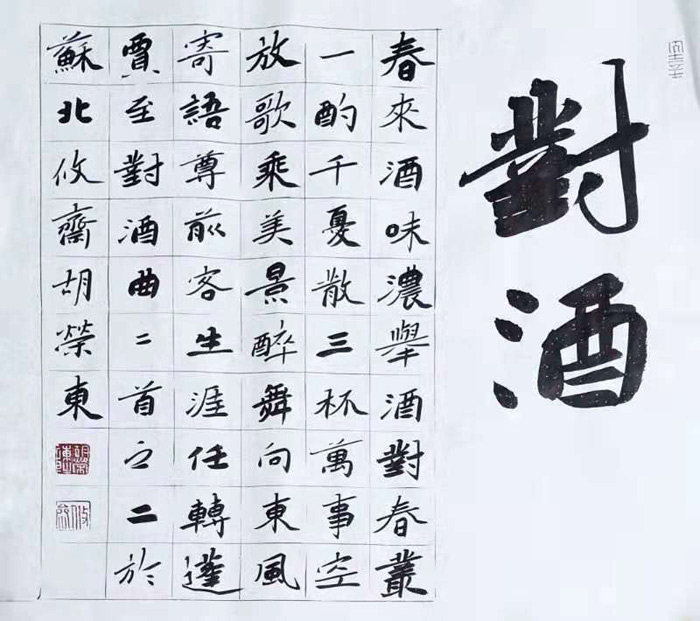 對酒
春來酒味濃舉酒對春叢
一酌千憂散三杯萬事空
放歌乘美景醉舞向東風
寄語尊前客生涯任轉蓬
賈至對酒曲二首之二於
蘇北攸齋胡榮東